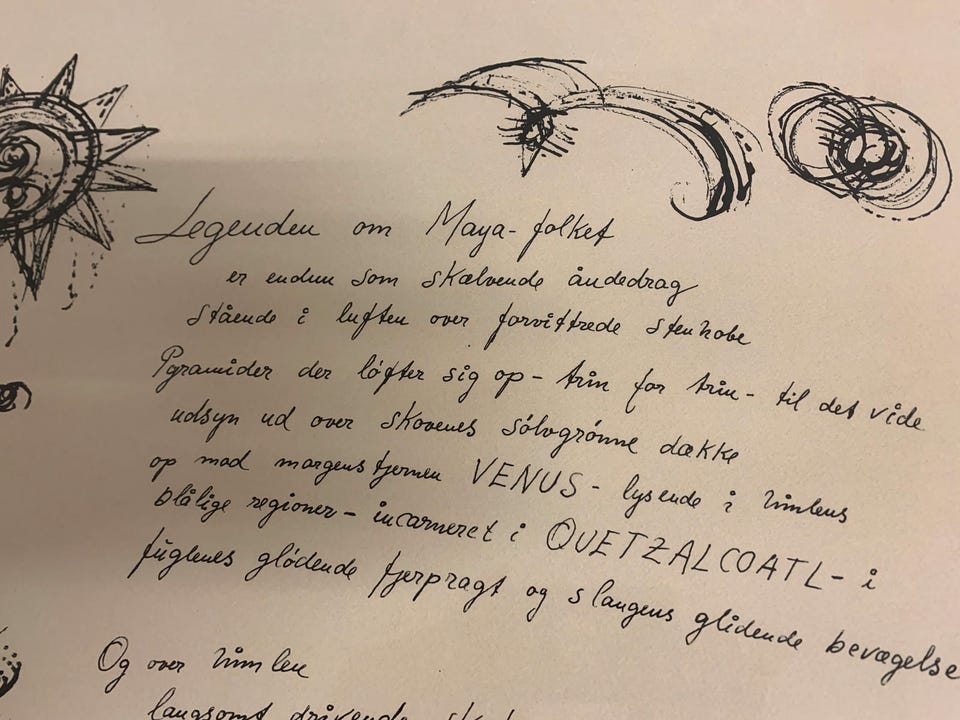 Legenden om Maya-folket
er endnu som skælvende åndedrag
stående i luften over forvittrede stenhobe
Pyramider der løfter sig op - trin for trin - til det vide
udsyn ud over skovenes sølvgrønne dække
op mod morgenstjernen VENUS - lysende i himlens
blålige regioner - incarneret i QUETZALCOATL - i
fuglenes glødende fjerpragt og slangens glidende bevægelse
Og over himlen
langsomt drivende